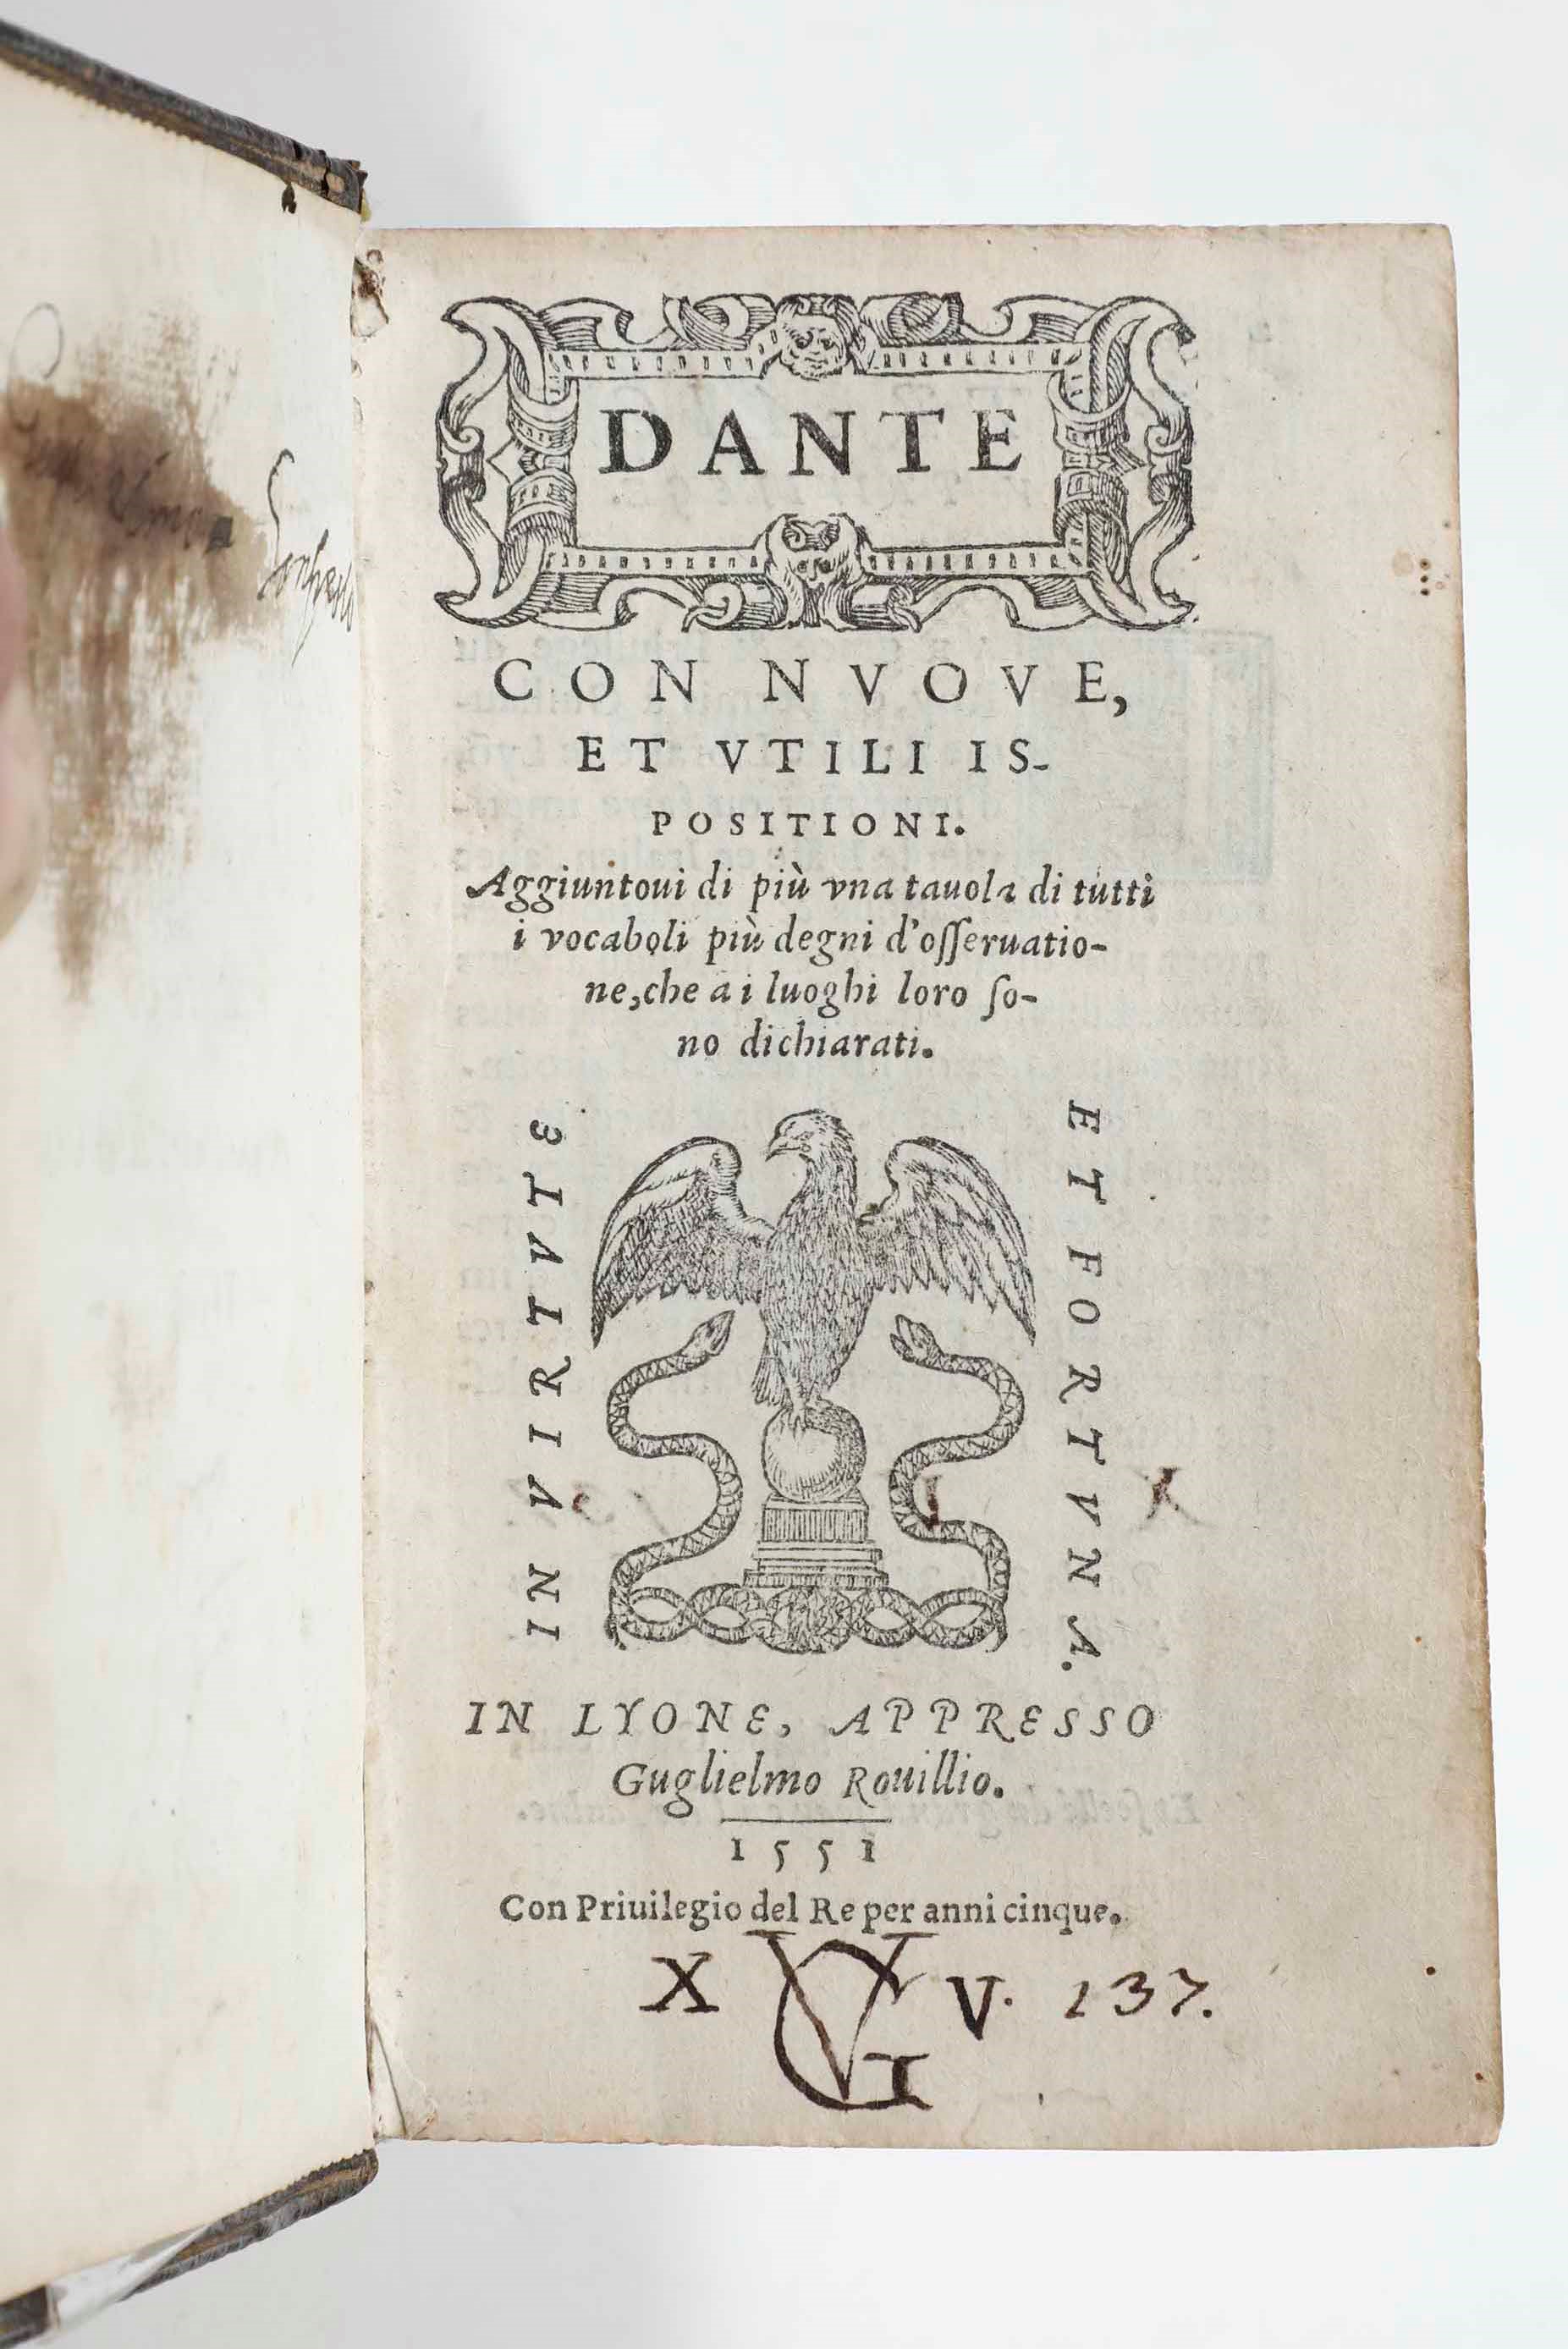 DANTE
CON NVOVE,
ET VTILI IS-
POSITIONI.
Aggiuntoui di più vna tauola di tutti
i vocaboli più degni d'osseruatio-
ne, che a i luoghi loro so-
no dichiarati.
IN VIRTVTE
ET FORTVNA.
IN LYONE, APPRESSO
Guglielmo Rouillio.
1551
Con Priuilegio del Re per anni cinque.
X VG V. 137.